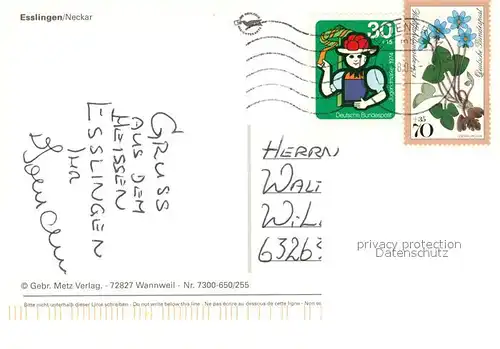 Esslingen/Neckar
GRUSS
AUS DEM
HEISSEN
ESSLINGEN
IHR
30
+15
Deutsche Bundespost
+35
70
Deutsche Bundespost
HERRN
WALT
WIL
6326
privacy protection
Datenschutz
© Gebr. Metz Verlag. - 72827 Wannweil - Nr. 7300-650/255
Bitte nicht unterhalb dieser Linie schreiben - Do not write below this line - Ne pas écrire au dessous de cette ligne - Non es